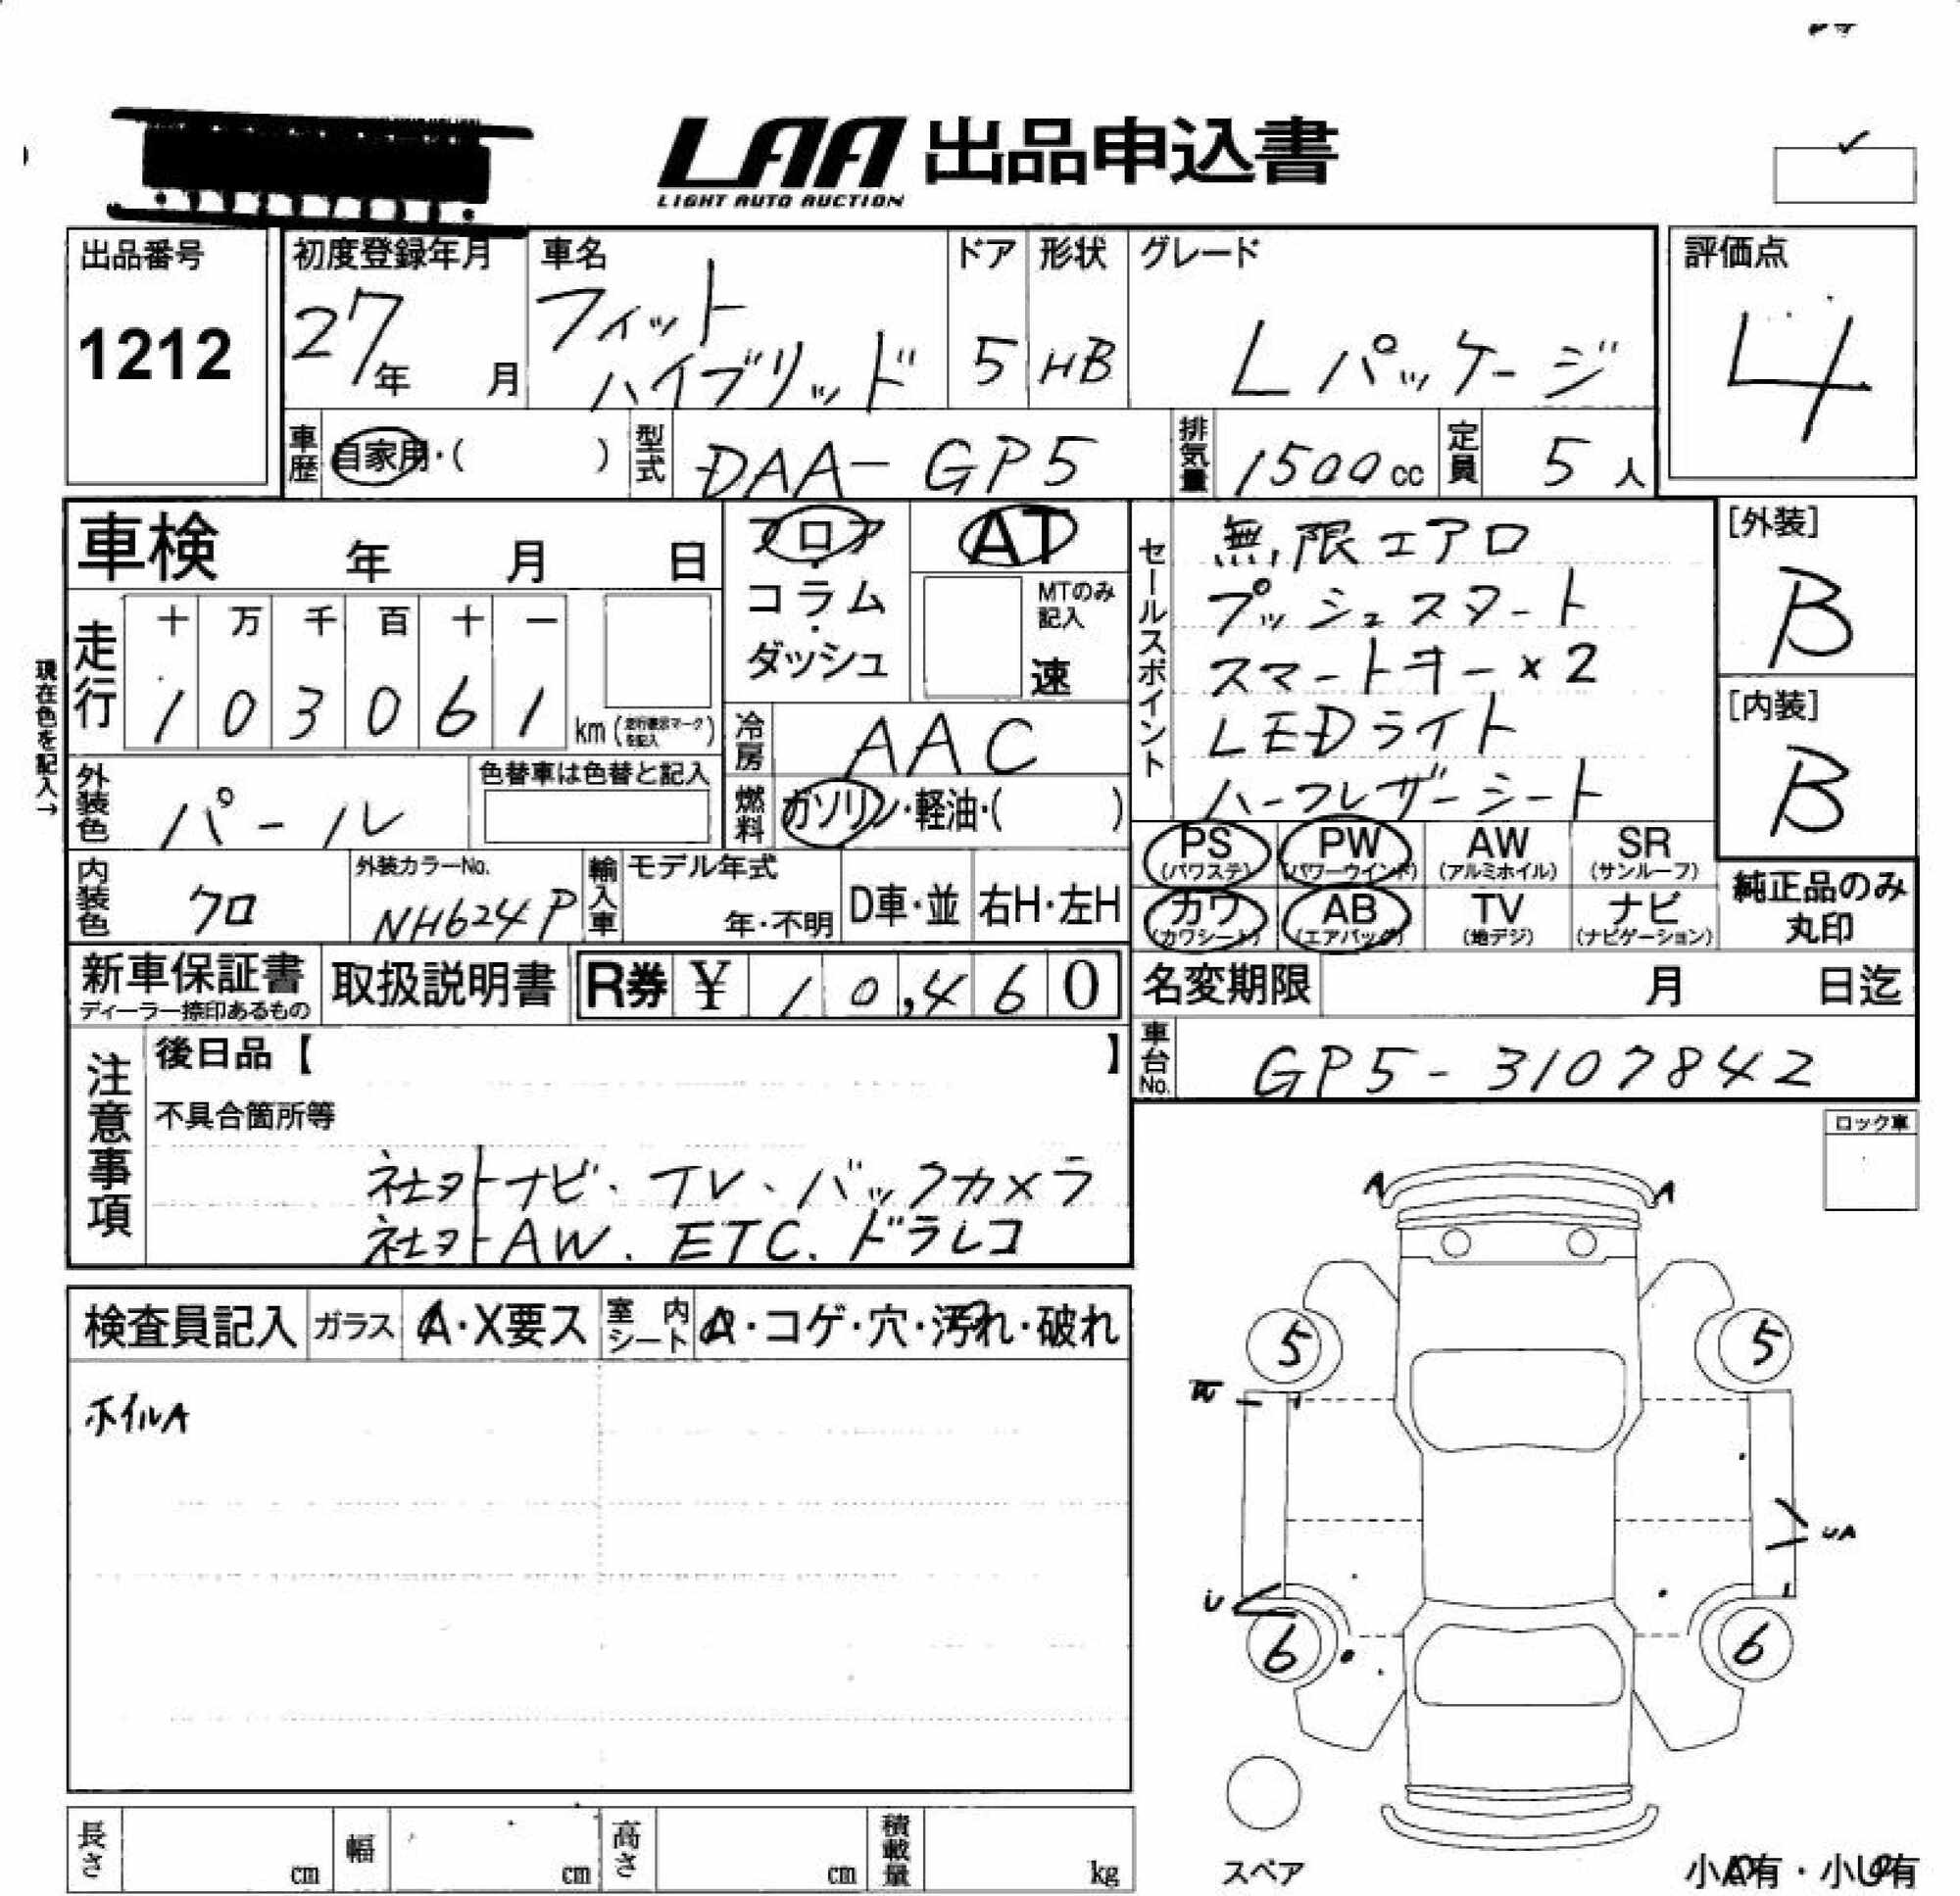 LAA 出品申込書
LIGHT AUTO AUCTION
出品番号
1212
初度登録年月
27年 月
車名
フィット
ハイブリッド
ドア
5
形状
HB
グレード
Lパッケージ
評価点
4
車歴
自家用・( )
型式
DAA-GP5
排気量
1500cc
定員
5人
車検 年 月 日
フロア
・
コラム
・
ダッシュ
AT
MTのみ
記入
速
セールスポイント
無限エアロ
プッシュスタート
スマートキー×2
LEDライト
ハーフレザーシート
[外装]
B
[内装]
B
現在色を記入→
走行
十 万 千 百 十 一
1 0 3 0 6 1
km (走行表示マークを記入)
冷房
AAC
外装色
パール
色替車は色替と記入
燃料
ガソリン・軽油・( )
PS PW AW SR
(パワステ) (パワーウインド) (アルミホイル) (サンルーフ)
カワ AB TV ナビ
(カワシート) (エアバッグ) (地デジ) (ナビゲーション)
純正品のみ
丸印
内装色
クロ
外装カラーNo.
NH624P
輸入車
モデル年式
年・不明
D車・並
右H・左H
新車保証書
ディーラー捺印あるもの
取扱説明書
R券 ¥ 10,460
名変期限 月 日迄
車台No.
GP5-3107842
注意事項
後日品【 】
不具合箇所等
社外ナビ・TV・バックカメラ
社外AW.ETC.ドラレコ
ロック車
A A
検査員記入
ガラス
A・X要ス
室内シート
A・コゲ・穴・汚れ・破れ
ホイルA
5 5
UA
U
6 6
スペア
小A有・小U有
長さ cm
幅 cm
高さ cm
積載量 kg